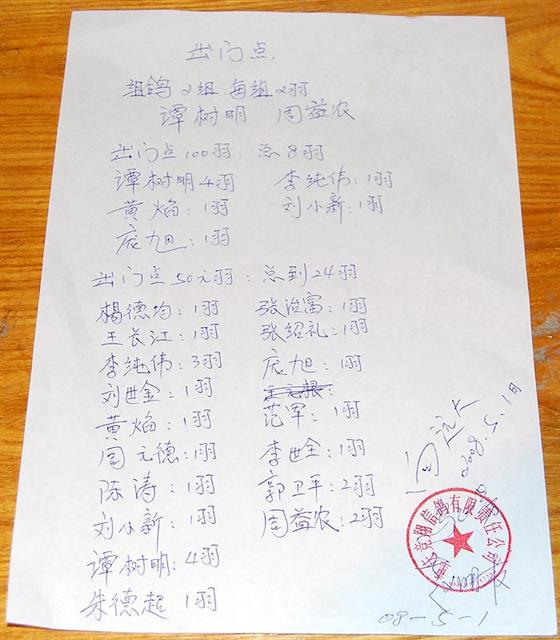 出门点
组鸽2组 每组2羽
谭树明 周益农
出门点100羽: 总8羽
谭树明4羽 李纯伟: 1羽
黄焰: 1羽 刘小新: 1羽
庞旭: 1羽
出门点50元羽: 总到24羽
杨德均: 1羽 张治富: 1羽
王长江: 1羽 张绍礼: 1羽
李纯伟: 3羽 庞旭: 1羽
刘世金: 1羽
黄焰: 1羽 范军: 1羽
周元德: 1羽 李世全: 1羽
陈涛: 1羽 郭卫平: 2羽
刘小新: 1羽 周益农: 2羽
谭树明: 4羽
朱德超 1羽
2008.5.1日
翔信鸽有限责任公司
08-5-1